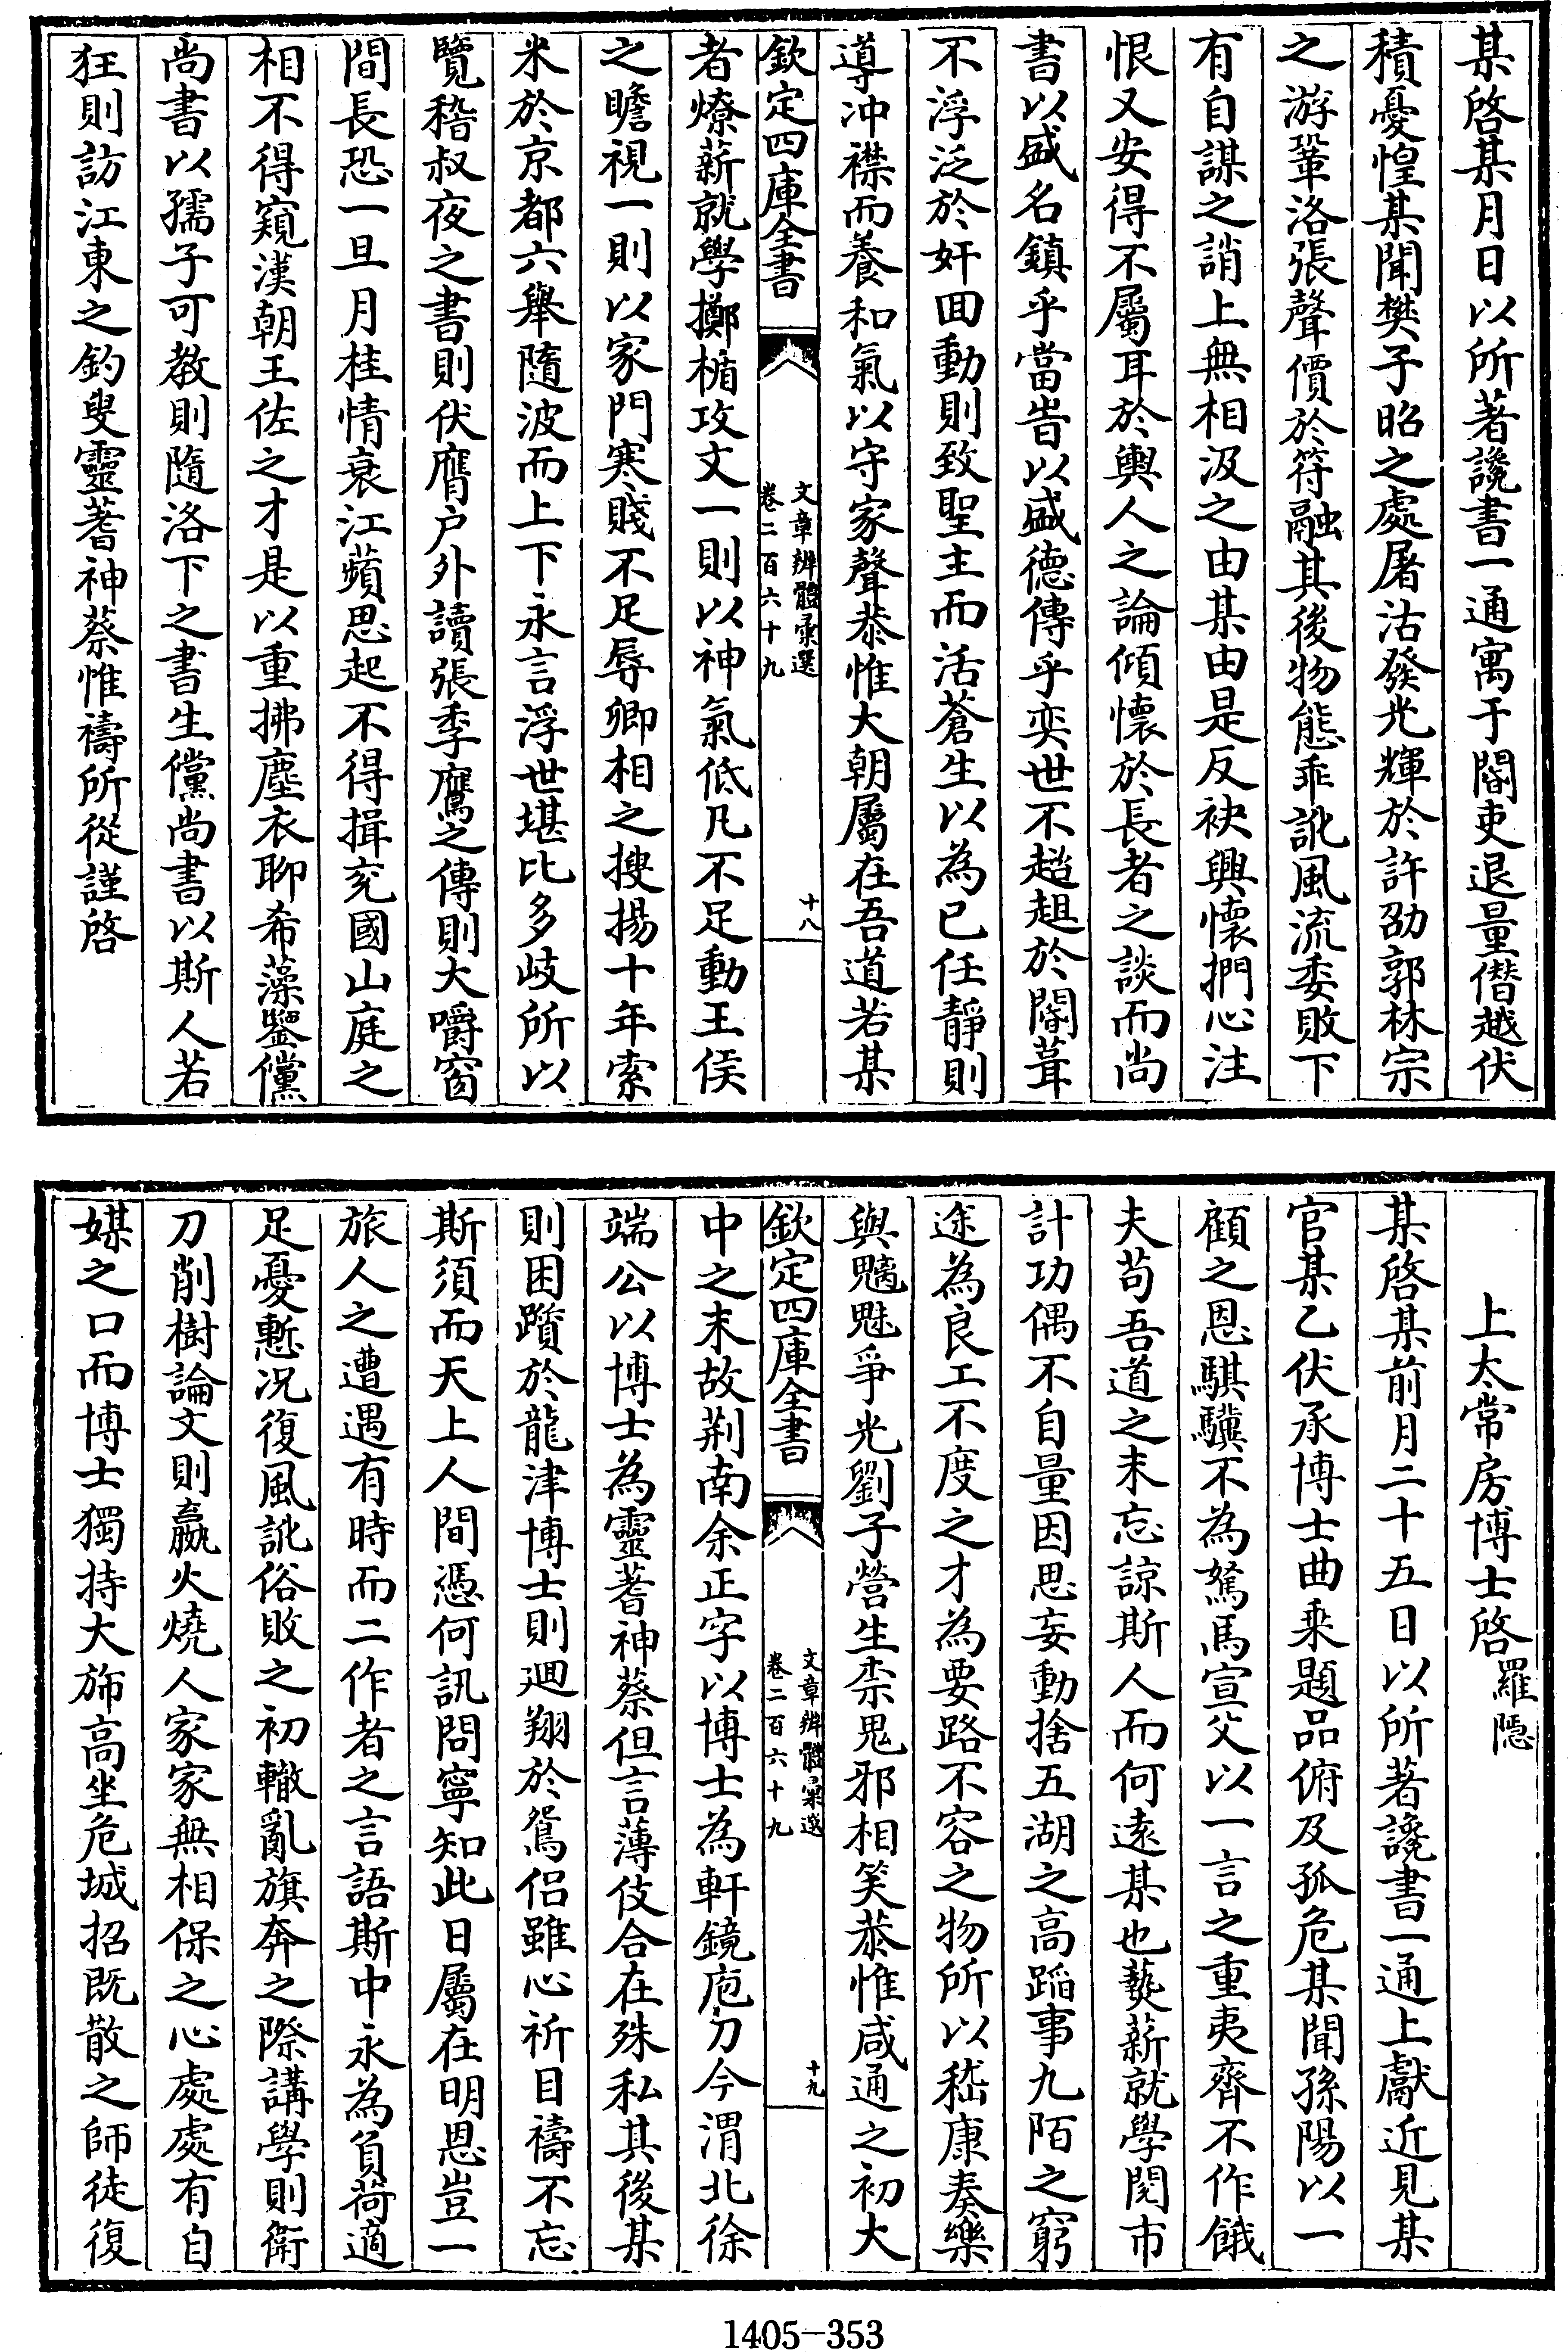 某啓某月日以所著讒書一通寓于閽吏退量僣越伏
積憂惶某聞樊子昭之處屠沽發光輝於許劭郭林宗
之游鞏洛張聲價於符融其後物態乖訛風流委敗下
有自謀之誚上無相汲之由某由是反袂興懷捫心注
恨又安得不屬耳於輿人之論傾懷於長者之談而尚
書以盛名鎮乎當旹以盛德傳乎奕世不趦趄於閽葺
不浮泛於奸回動則致聖主而活蒼生以為已任靜則
導冲襟而養和氣以守家聲恭惟大朝屬在吾道若某
欽定四庫全書
文章辨體彙選
卷二百六十九
十八
者燎薪就學擲楯攻文一則以神氣低凡不足動王侯
之瞻視一則以家門寒賤不足辱卿相之搜揚十年索
米於京都六舉隨波而上下永言浮世堪比多岐所以
覽嵇叔夜之書則伏膺户外讀張季鷹之傳則大嚼窗
間長恐一旦月桂情衰江蘋思起不得揖兖國山庭之
相不得窺漢朝王佐之才是以重拂塵衣聊希藻鑒儻
尚書以孺子可教則隨洛下之書生儻尚書以斯人若
狂則訪江東之釣叟靈蓍神蔡惟禱所從謹啓
上太常房博士啓
羅隱
某啓某前月二十五日以所著讒書一通上獻近見某
官某乙伏承博士曲乘題品俯及孤危某聞孫陽以一
顧之恩騏驥不為駑馬宣父以一言之重夷齊不作餓
夫苟吾道之未忘諒斯人而何遠某也爇薪就學閱市
計功偶不自量因思妄動捨五湖之高蹈事九陌之窮
途為良工不度之才為要路不容之物所以嵇康奏樂
與魑魅爭光劉子營生柰鬼邪相笑恭惟咸通之初大
欽定四庫全書
文章辨體彙選
卷二百六十九
十九
中之末故荆南余正字以博士為軒鏡庖刀今渭北徐
端公以博士為靈蓍神蔡但言薄伎合在殊私其後某
則困躓於龍津博士則迴翔於鴛侶雖心祈目禱不忘
斯須而天上人間憑何訊問寧知此日屬在明恩豈一
旅人之遭遇有時而二作者之言語斯中永為負荷適
足憂慙况復風訛俗敗之初轍亂旗奔之際講學則衒
刀削樹論文則嬴火燒人家家無相保之心處處有自
媒之口而博士獨持大斾高坐危城招既散之師徒復
1405-353